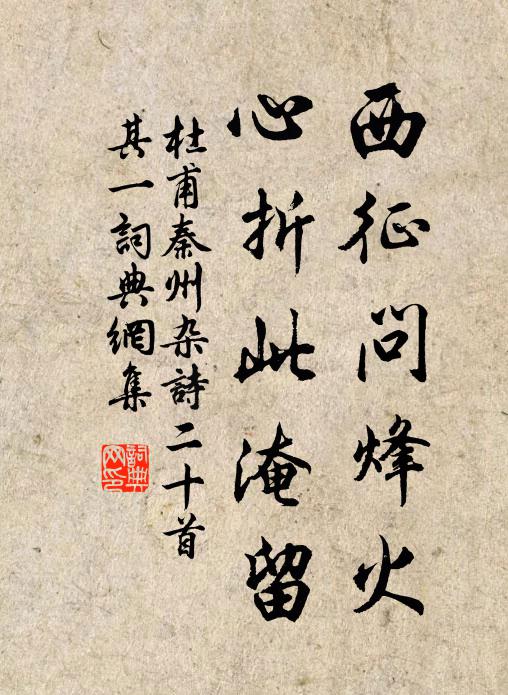 西征問烽火
心折此淹留
杜甫秦州杂詩二十首
其一詞典網集
詞典
网印